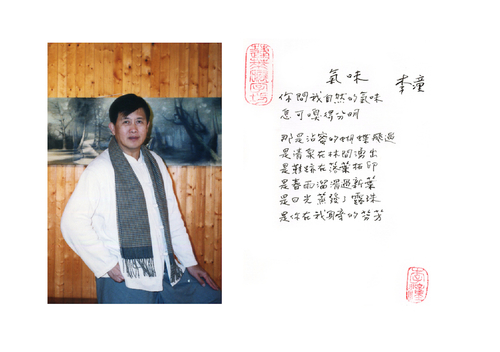 氣味 李潼
你問我自然的氣味
怎可嗅得分明
那是沾蜜的蝴蝶飛過
是清泉在林間湧出
是鞋跡在落葉拓印
是春雨溜滑過新葉
是日光蒸發了露珠
是你在我的芬芳
李潼